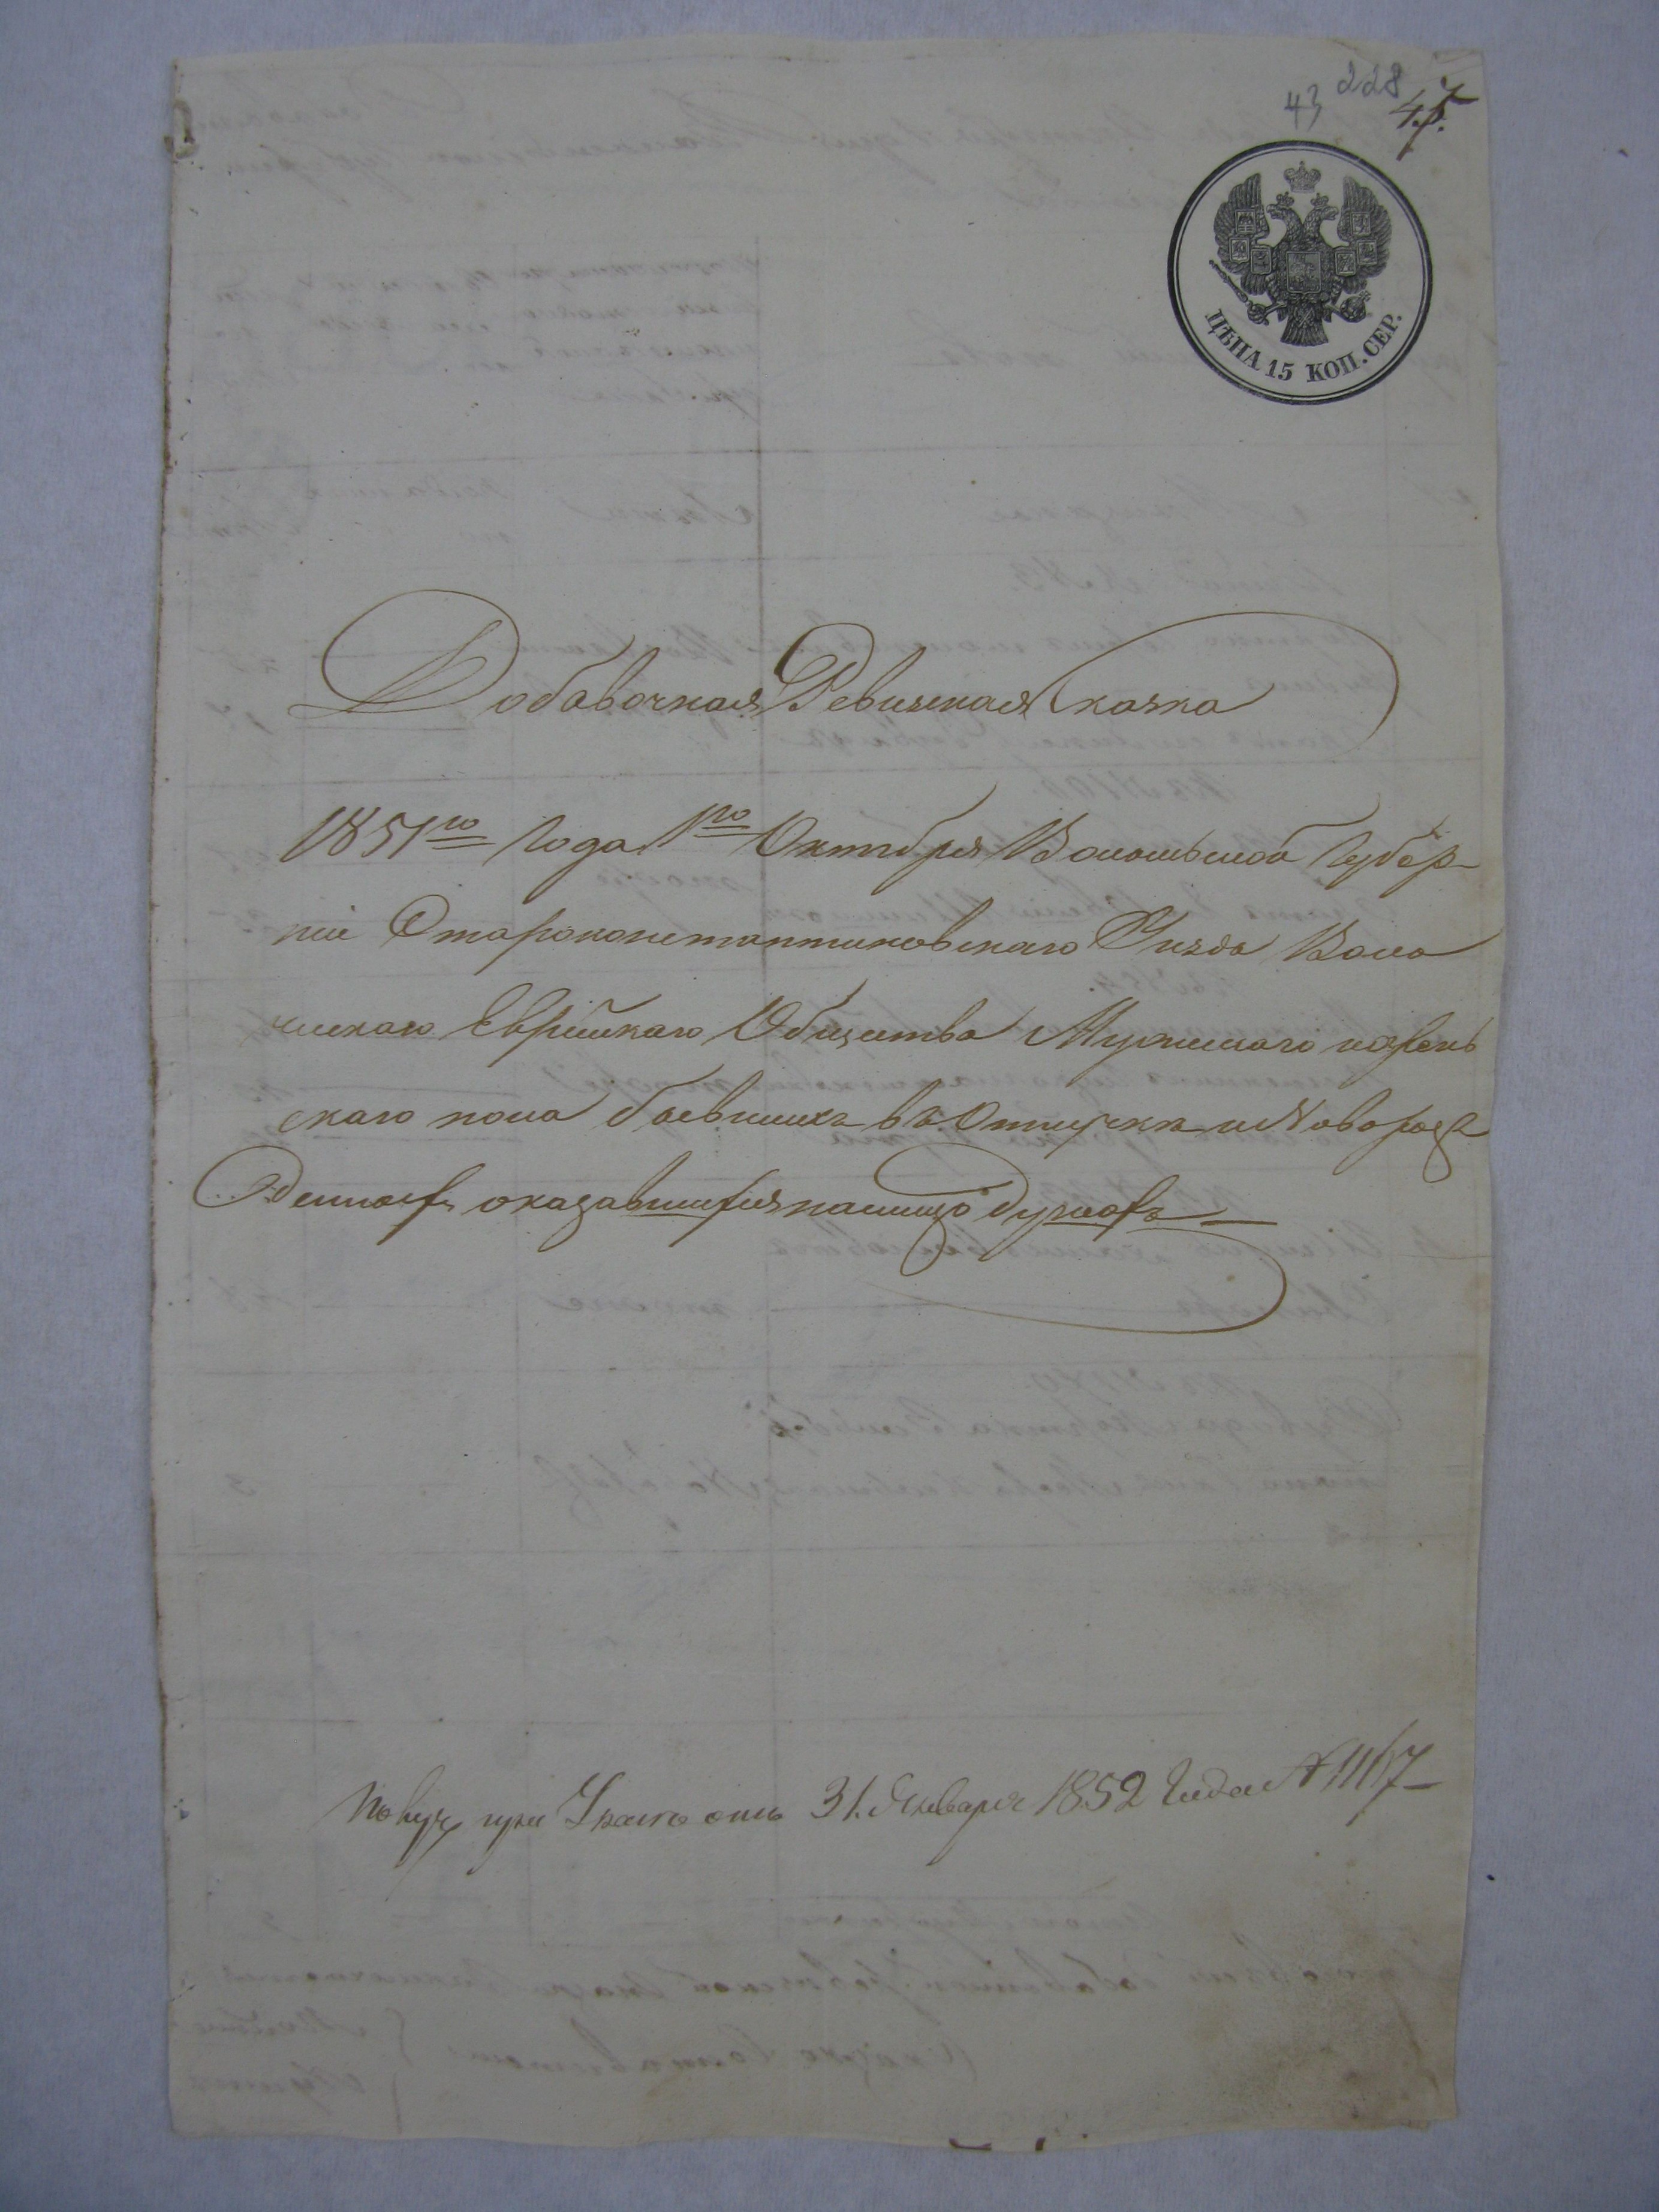 228
43
45.
ЦѢНА 15 КОП. СЕР.
Добавочная Ревизская Сказка
1851го Года 1го Октября Волынской Губер-
ніи Староконстантиновскаго Уѣзда Воло
чискаго Еврейскаго Общества Мужескаго и жень
скаго пола бывшихъ въ Отлучкѣ и Новорож
денных оказавшихся налицо душахъ
при Указѣ отъ 31. Января 1852 Года № 1167